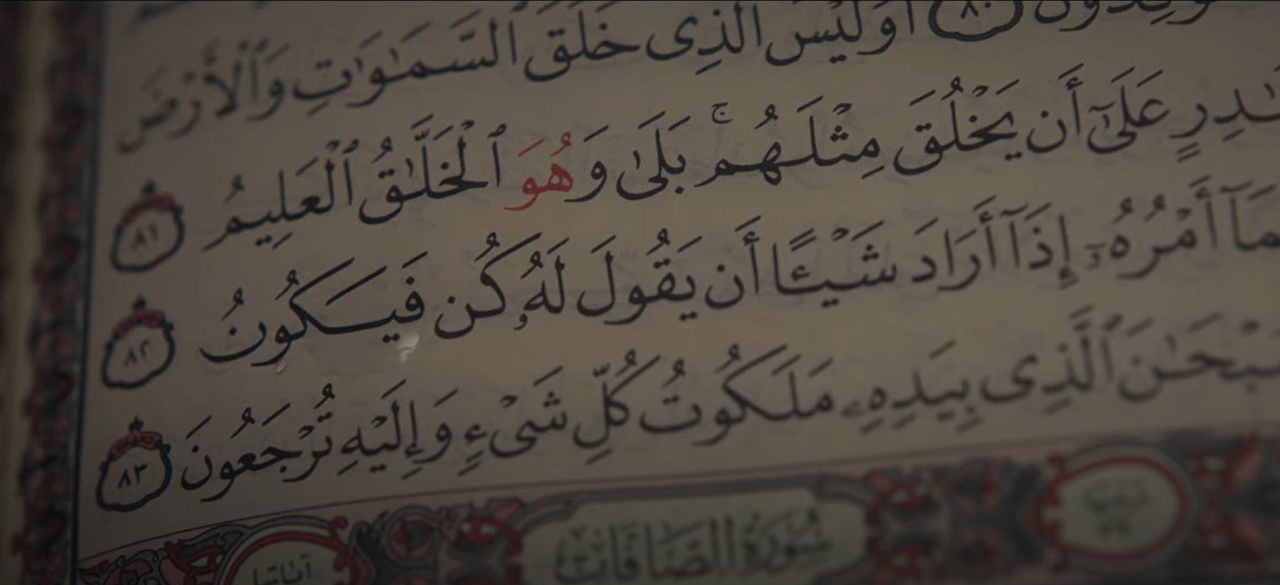 أَوَلَيْسَ ٱلَّذِى خَلَقَ ٱلسَّمَٰوَٰتِ وَٱلْأَرْضَ
عَلَىٰٓ أَن يَخْلُقَ مِثْلَهُم ۚ بَلَىٰ وَهُوَ ٱلْخَلَّٰقُ ٱلْعَلِيمُ ٨١
أَمْرُهُۥٓ إِذَآ أَرَادَ شَيْـًٔا أَن يَقُولَ لَهُۥ كُن فَيَكُونُ ٨٢
ٱلَّذِى بِيَدِهِۦ مَلَكُوتُ كُلِّ شَىْءٍ وَإِلَيْهِ تُرْجَعُونَ ٨٣
سُورَةُ الصَّافَّاتِ